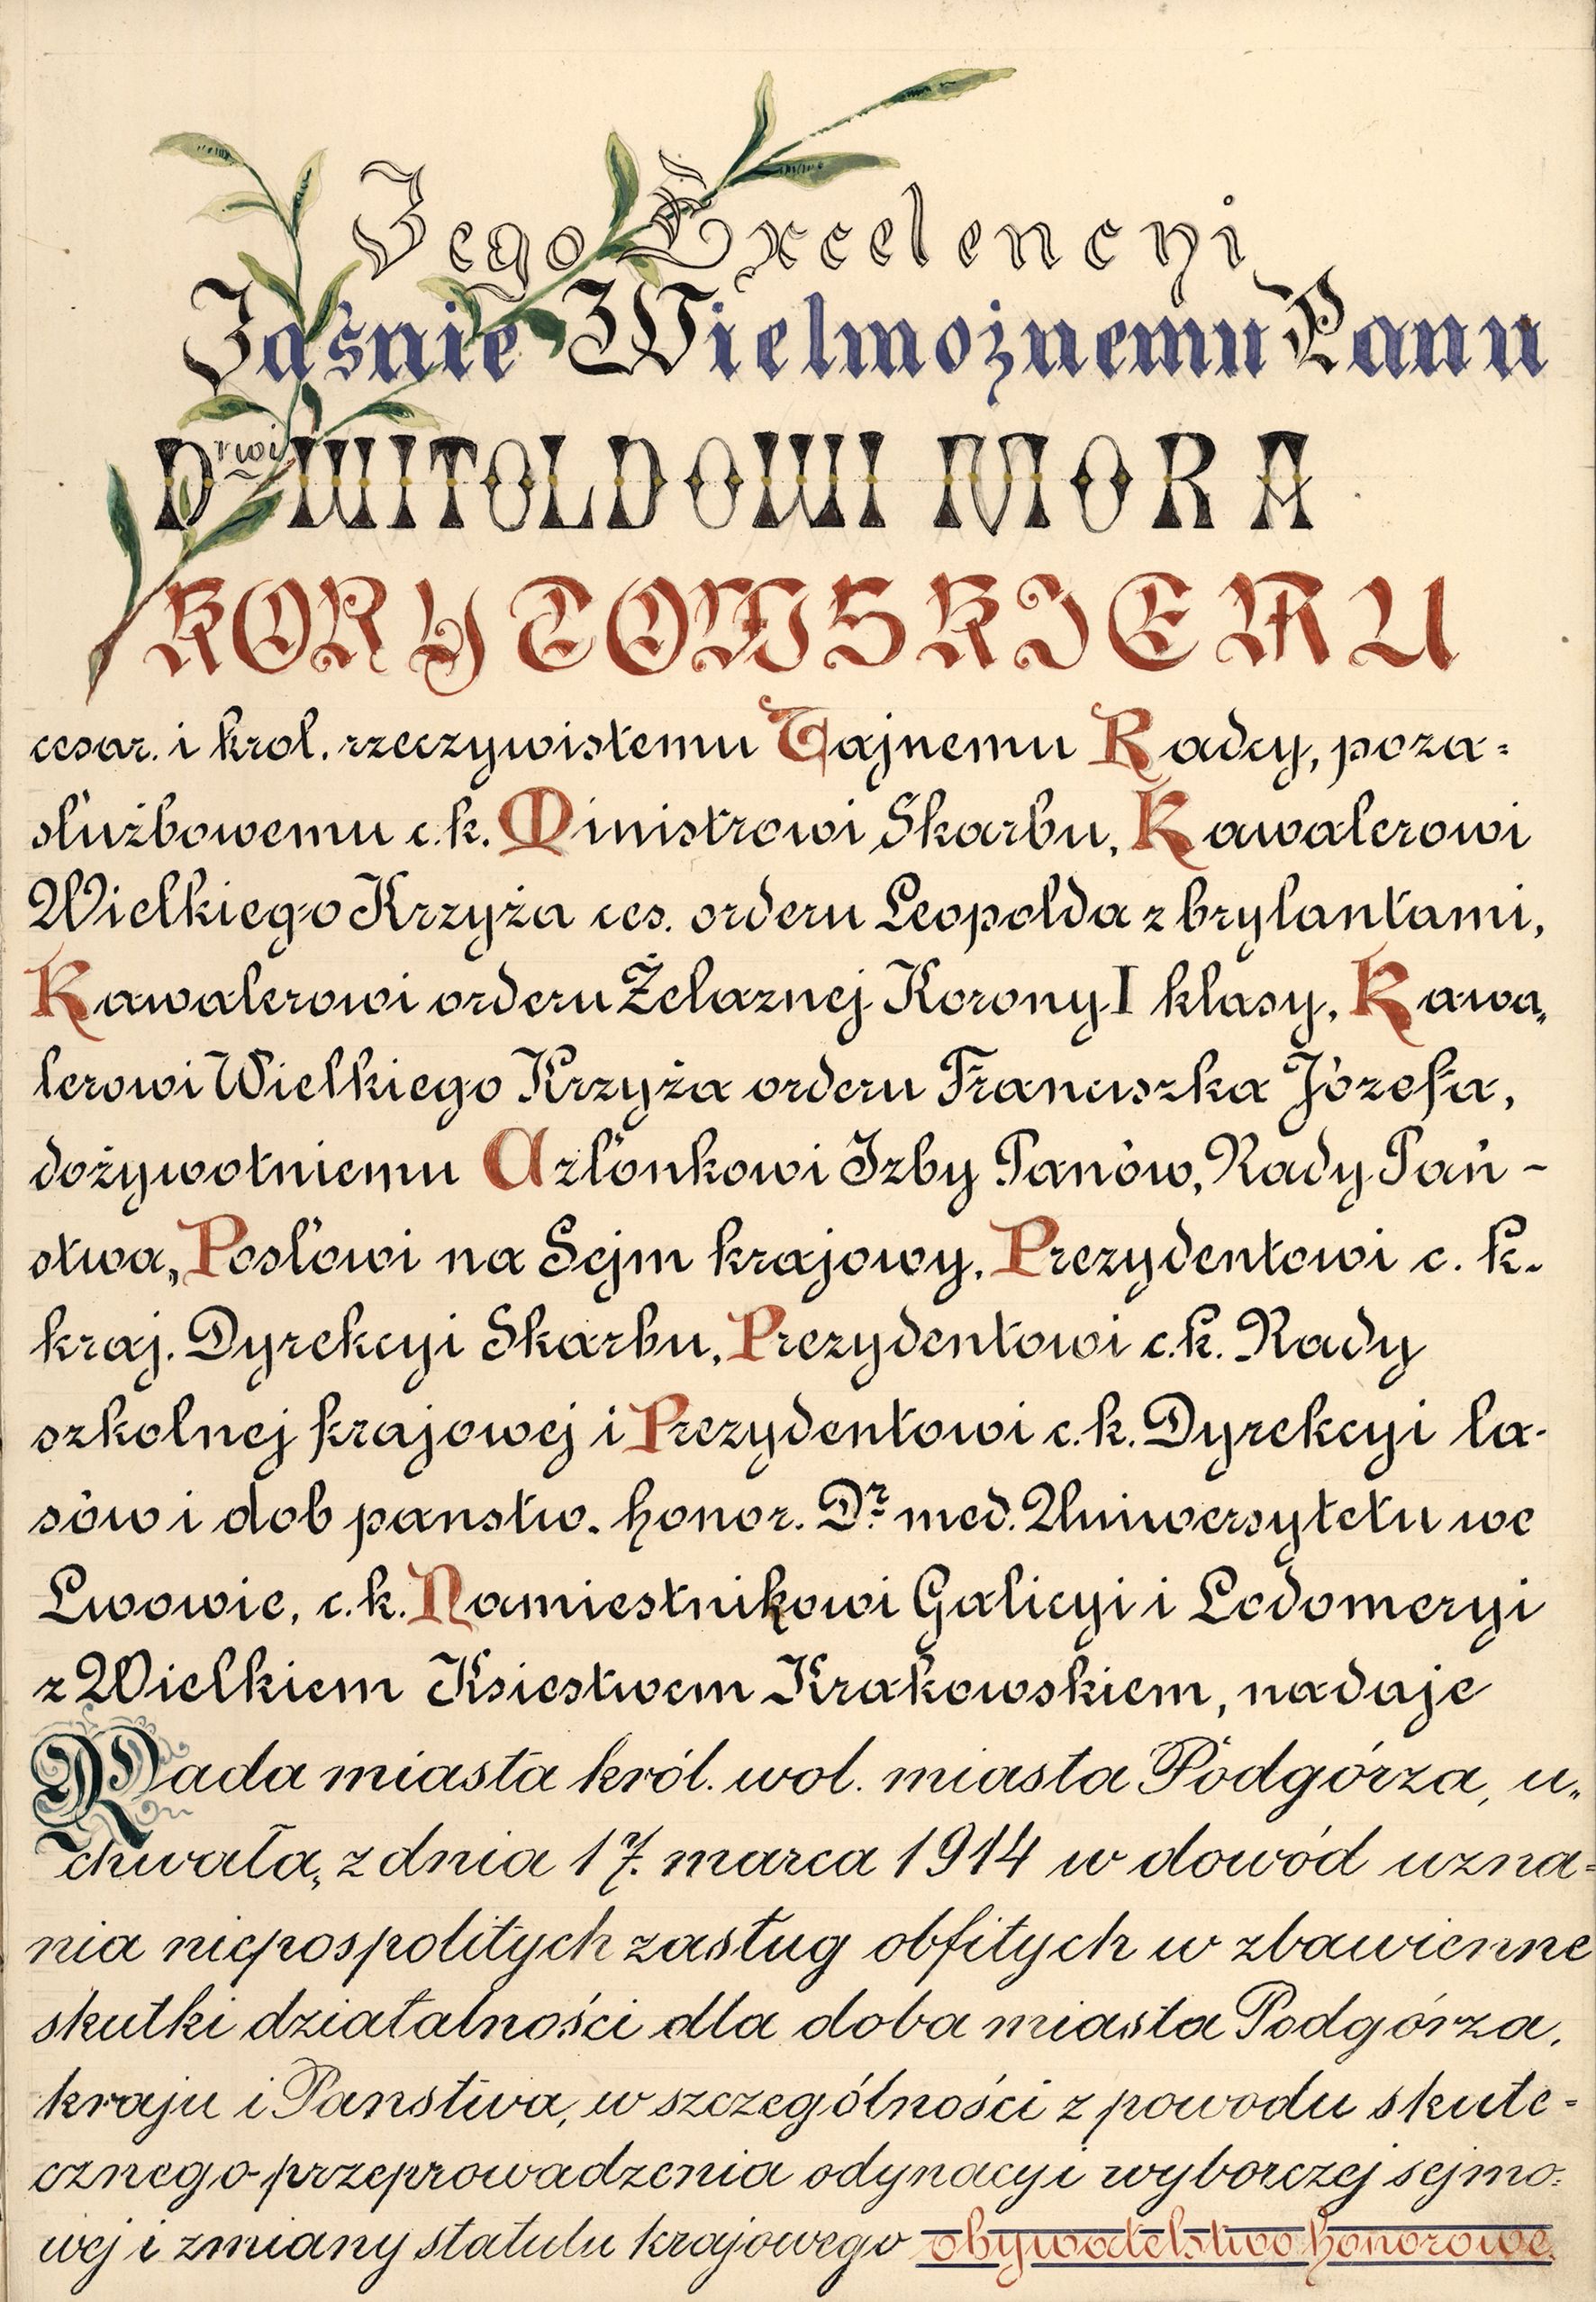 Jego Excelencyi
Jaśnie Wielmożnemu Panu
Drwi WITOLDOWI MORA
KORYTOWSKIEMU
cesar. i krol. rzeczywistemu Tajnemu Radcy, poza=
służbowemu c.k. Ministrowi Skarbu, Kawalerowi
Wielkiego Krzyża ces. orderu Leopolda z brylantami,
Kawalerowi orderu Żelaznej Korony I klasy, Kawa„
lerowi Wielkiego Krzyża orderu Franciszka Józefa,
dożywotniemu Członkowi Izby Panów, Rady Pań-
stwa, Posłowi na Sejm krajowy, Prezydentowi c. k.
kraj. Dyrekcyi Skarbu, Prezydentowi c.k. Rady
szkolnej krajowej i Prezydentowi c.k. Dyrekcyi la-
sów i dob panstw. honor. Dr. med. Uniwersytetu we
Lwowie, c.k. Namiestnikowi Galicyi i Lodomeryi
z Wielkiem Ksiestwem Krakowskiem, nadaje
Rada miasta król. wol. miasta Podgórza, u„
chwałą z dnia 17. marca 1914 w dowód uzna=
nia niepospolitych zasług obfitych w zbawienne
skutki działalności dla doba miasta Podgórza,
kraju i Panstwa, w szczególności z powodu skute-
cznego przeprowadzenia odynacyi wyborczej sejmo=
wej i zmiany statutu krajowego obywatelstwo honorowe.